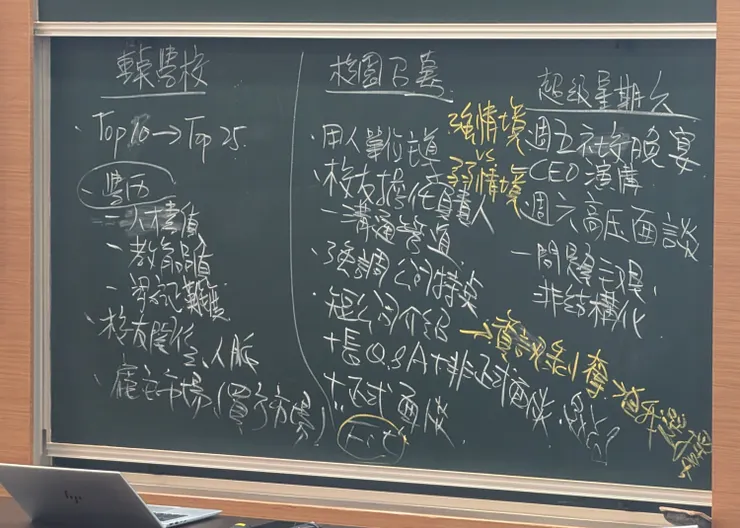 學校
Top 10 → Top 25
、學历
－人才價值
－教育品質
－難度
、校友關係、人脈
、雇主市場(買方市場)
校園召募
、用人單位主導
、校友擔任負責人
－溝通管道
、強調公司特点
、短公司介紹
＋長Q&A＋非正式面談
＋正式面談
Fit
強情境
vs.
弱情境
超級星期六
週五社交晚宴
CEO演講
週六高压面談
－問題主观、
非結構化
→資訊剝奪
自我選擇